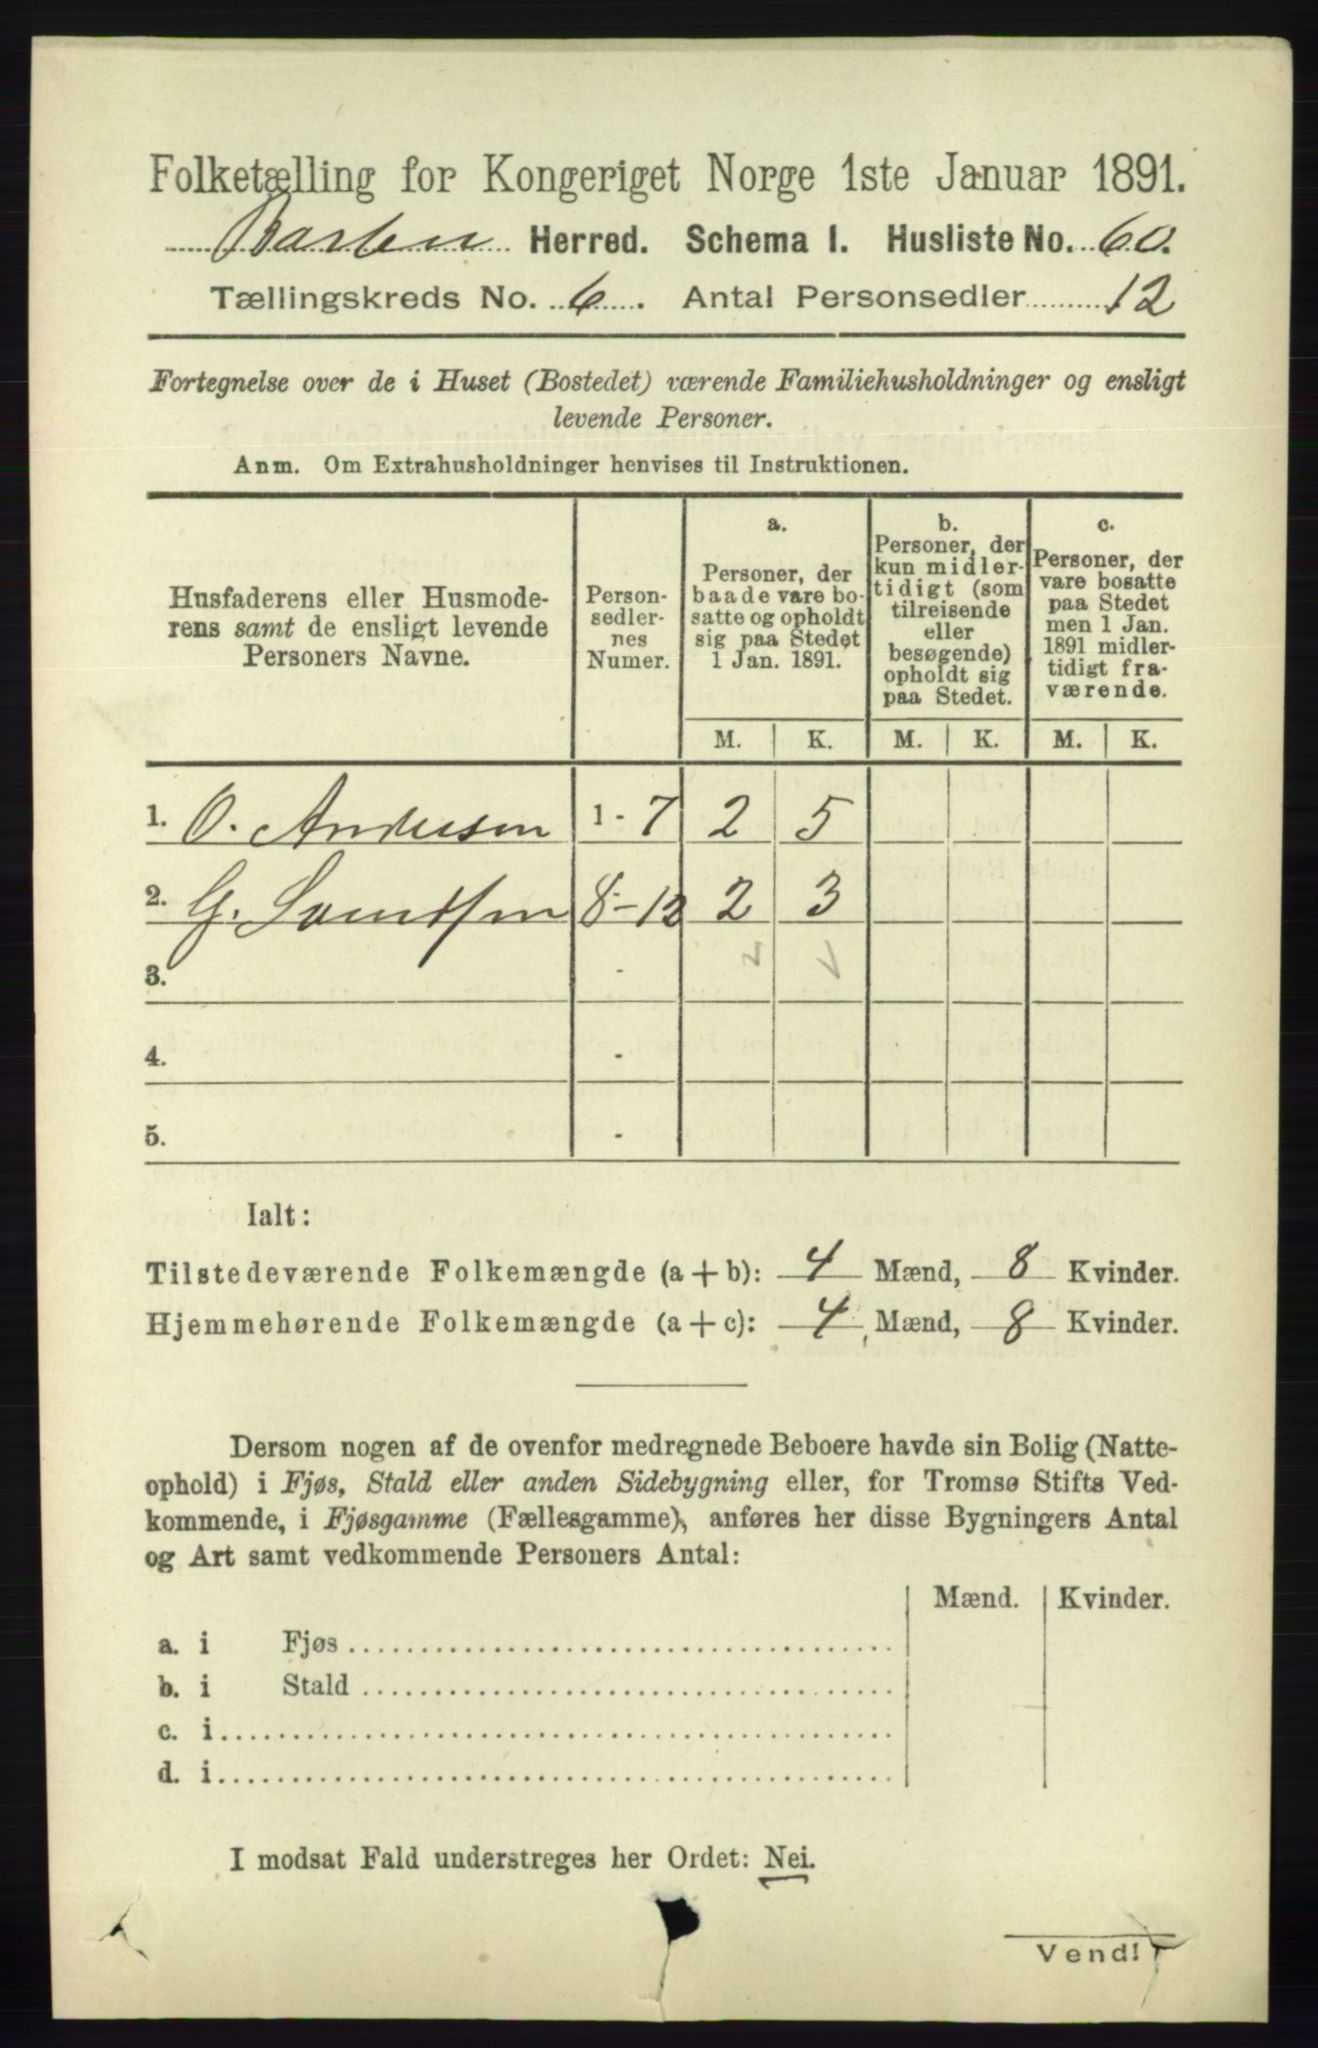 Folketælling for Kongeriget Norge 1ste Januar 1891.
Barbu Herred. Schema I. Husliste No. 60.
Tællingskreds No. 6. Antal Personsedler 12
Fortegnelse over de i Huset (Bostedet) værende Familiehusholdninger og ensligt
levende Personer.
Anm. Om Extrahusholdninger henvises til Instruktionen.
Husfaderens eller Husmode-
rens samt de ensligt levende
Personers Navne.
Person-
sedler-
nes
Numer.
a.
Personer, der
baade vare bo-
satte og opholdt
sig paa Stedet
1 Jan. 1891.
b.
Personer, der
kun midler-
tidigt (som
tilreisende
eller
besøgende)
opholdt sig
paa Stedet.
c.
Personer, der
vare bosatte
paa Stedet
men 1 Jan.
1891 midler-
tidigt fra-
værende.
M. K. M. K. M. K.
1. O. Andersen 1 - 7 2 5
2. G. 8 - 12 2 3
3. -
4. -
5. -
Ialt:
Tilstedeværende Folkemængde (a + b): 4 Mænd, 8 Kvinder.
Hjemmehørende Folkemængde (a + c): 4 Mænd, 8 Kvinder.
Dersom nogen af de ovenfor medregnede Beboere havde sin Bolig (Natte-
ophold) i Fjøs, Stald eller anden Sidebygning eller, for Tromsø Stifts Ved-
kommende, i Fjøsgamme (Fællesgamme), anføres her disse Bygningers Antal
og Art samt vedkommende Personers Antal:
Mænd. Kvinder.
a. i Fjøs
b. i Stald
c. i
d. i
I modsat Fald understreges her Ordet: Nei.
Vend!